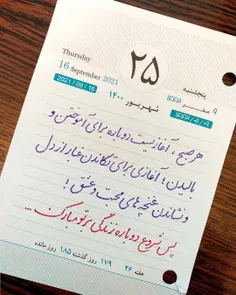 Thursday
16 September 2021
2021 / 09 / 16
۲۵
شهریور ۱۴۰۰
پنجشنبه
۹ صفر ۱۴۴۳
هر صبح، آغازیست دوباره برای آموختن و
بالیدن؛ آغازی برای تکاندن غبار از دل
و نشاندن غنچه‌های محبت و عشق!
پس شروع دوباره زندگی بر تو مبارک...
هفته ۲۶ ۱۷۹ روز گذشته ۱۸۵ روز مانده